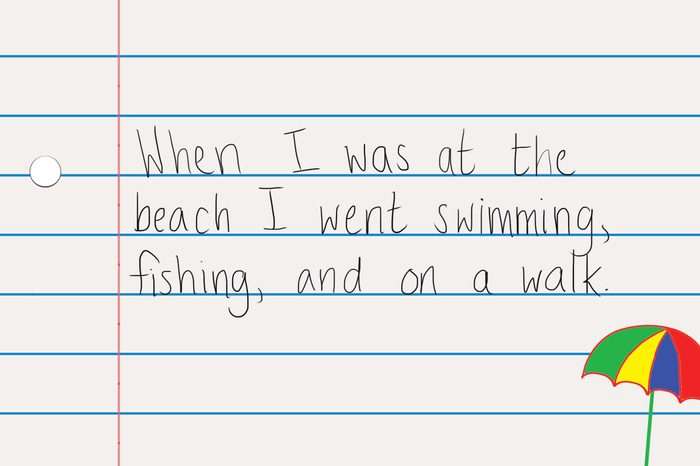 When I was at the
beach I went swimming,
fishing, and on a walk.